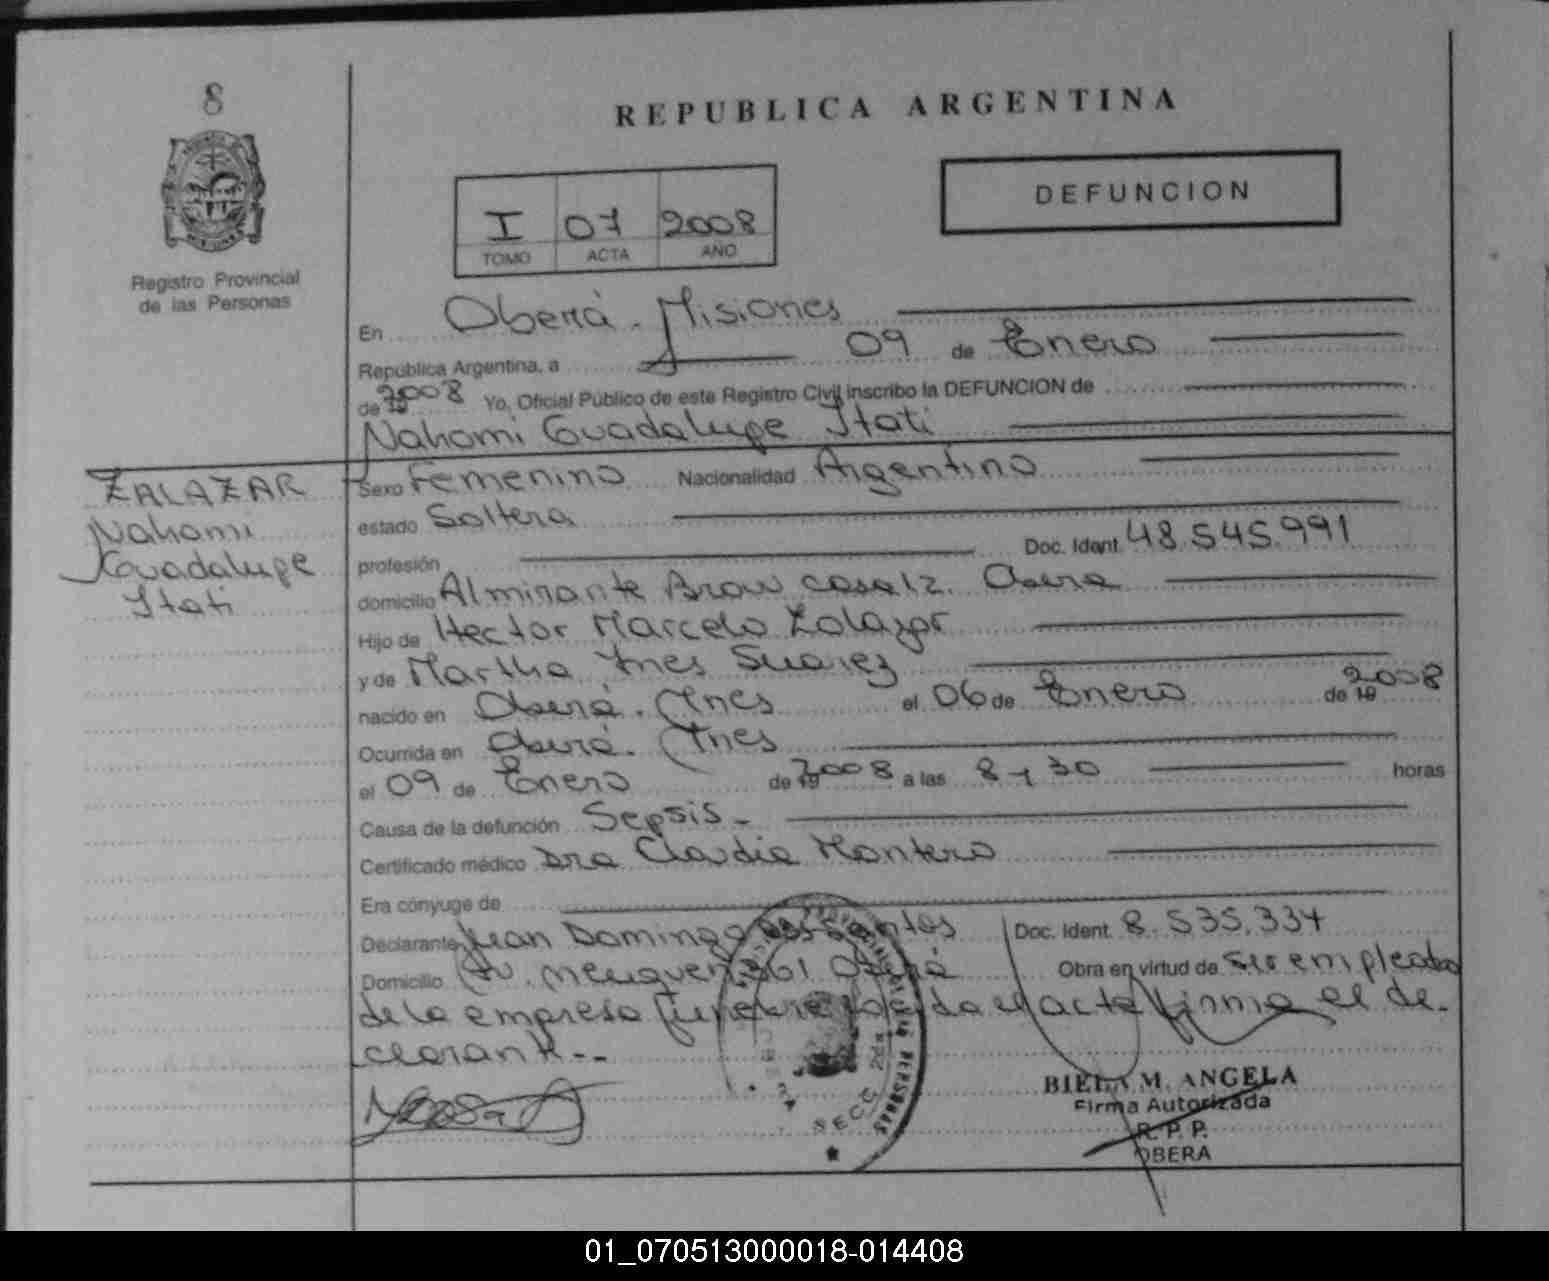 8
REPUBLICA ARGENTINA
DEFUNCION
I 07 2008
TOMO ACTA AÑO
Registro Provincial
de las Personas
En Oberá. Misiones
República Argentina, a 09 de Enero
de 19 2008 Yo, Oficial Público de este Registro Civil inscribo la DEFUNCION de
Nahomi Guadalupe Itati
ZALAZAR
Nahomi
Guadalupe
Itati
Sexo Femenino Nacionalidad Argentina
estado Soltera
profesión Doc. Ident. 48.545.991
domicilio Almirante Brow casa 12. Oberá
Hijo de Hector Marcelo Zalazar
y de Martha Ynes Suarez
nacido en Oberá. Mnes el 06 de Enero de 19 2008
Ocurrida en Oberá. Mnes
el 09 de Enero de 19 2008 a las 8 y 30 horas
Causa de la defunción Sepsis -
Certificado médico Dra Claudia Montero
Era cónyuge de
Declarante Juan Domingo Dos Santos Doc. Ident. 8.535.334
Domicilio Av. Neuquen 361 Oberá Obra en virtud de ser empleado
de la empresa funebre el acta firma el de-
clarante --
SECC
BIELA M. ANGELA
Firma Autorizada
R. P. P.
OBERA
01_070513000018-014408